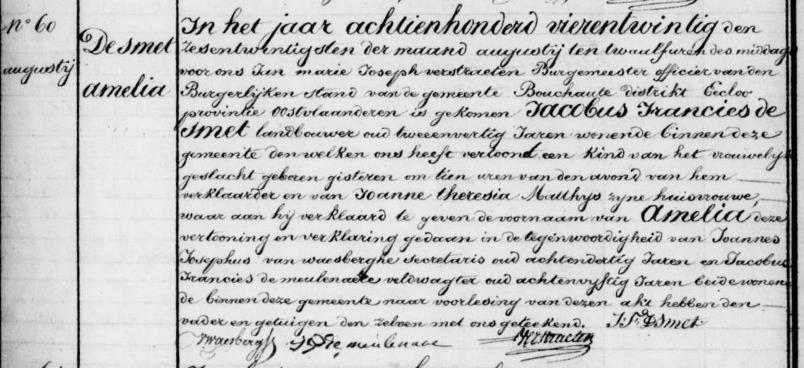 N° 60
augustij
De smet
amelia
In het jaar achtienhonderd vierentwintig den
zesentwintigsten der maand augustij ten twaalf uren des middags
voor ons Jan marie Joseph verstraeten Burgemeester officier van den
Burgerlijken stand van de gemeente Bouchaute distrikt Eecloo
provintie oostvlaanderen is gekomen Jacobus Francies de
Smet landbouwer oud tweeenvertig Jaren wonende binnen deze
gemeente den welken ons heeft vertoond een kind van het vrouwelijk
geslacht geboren gisteren om tien uren van den avond van hem
verklaarder en van Joanne theresia Matthys zyne huisvrouwe,
waar aan hij verklaard te geven de voornaam van Amelia deze
vertooning en verklaring gedaan in de tegenwoordigheid van Joannes
Josephus van waesberghe secretaris oud achtendertig Jaren en Jacobus
Francies de meulenaere veldwagter oud achtenvyftig Jaren beide wonen
de binnen deze gemeente naar voorlesing van dezen akt hebben den
vader en getuigen den zelven met ons geteekend. J. F. D Smet
Vwaesberghe de meulenaere Verstraeten